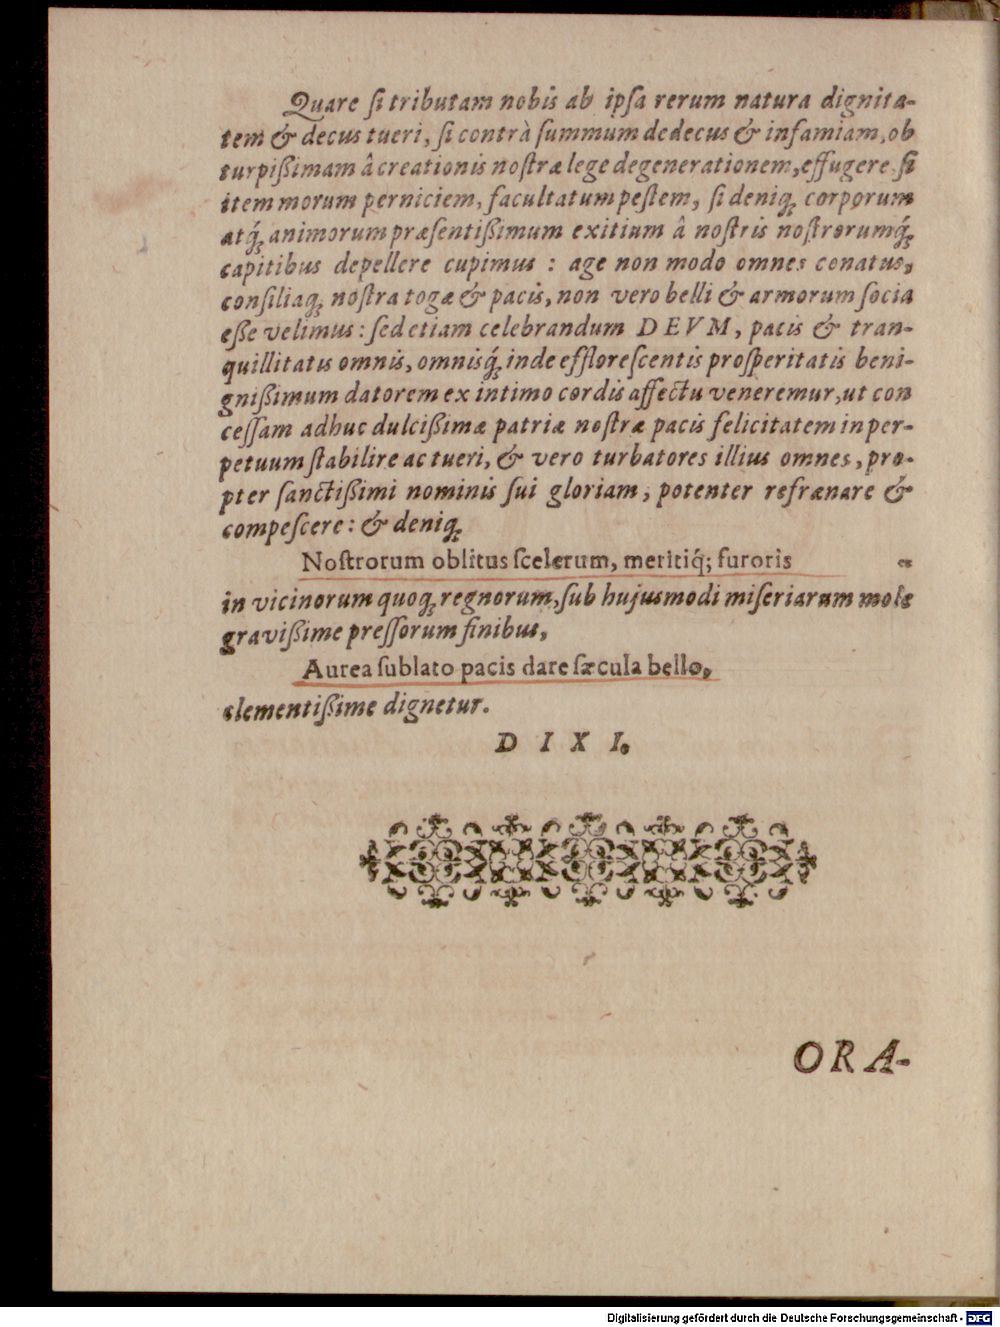 Quare ſi tributam nobis ab ipſa rerum natura dignita-
tem & decus tueri, ſi contrà ſummum dedecus & infamiam, ob
turpißimam â creationis noſtræ lege degenerationem, effugere ſi
item morum perniciem, facultatum peſtem, ſi deniq́; corporum
atq́; animorum præſentißimum exitium â noſtris noſtrorumq́;
capitibus depellere cupimus : age non modo omnes conatus,
conſiliaq́; noſtra togæ & pacis, non vero belli & armorum ſocia
eße velimus: ſed etiam celebrandum DEVM, pacis & tran-
quillitatis omnis, omnisq́; inde effloreſcentis proſperitatis beni-
gnißimum datorem ex intimo cordis affectu veneremur, ut con
ceſſam adhuc dulcißimæ patriæ noſtræ pacis felicitatem in per-
petuum ſtabilire ac tueri, & vero turbatores illius omnes, pro-
pter ſanctißimi nominis ſui gloriam, potenter refrænare &
compeſcere: & deniq́;
Noſtrorum oblitus ſcelerum, meritiq́; furoris
in vicinorum quoq́; regnorum, ſub hujusmodi miſeriarum mole
gravißime preſſorum finibus,
Aurea ſublato pacis dare ſæcula bello,
clementißime dignetur.
D I X I.
ORA-
Digitalisierung gefördert durch die Deutsche Forschungsgemeinschaft - DFG